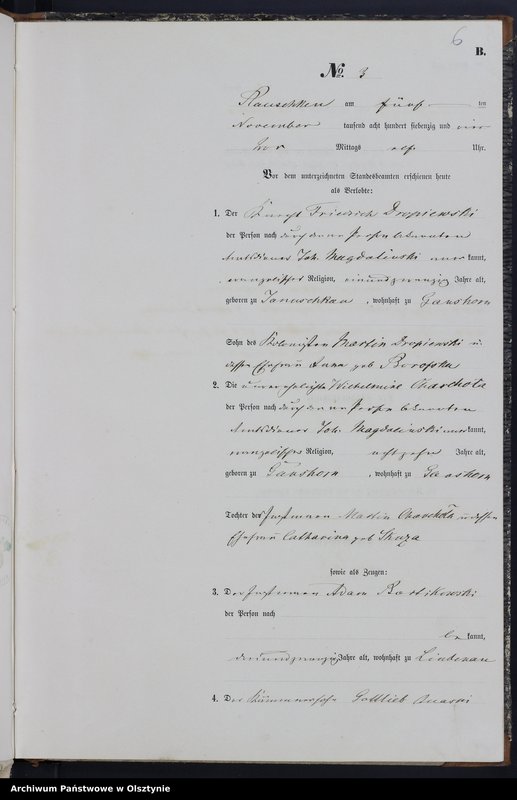 6
B.
No 3
Rauschken am fünf ten
November tausend acht hundert siebenzig und vier
Vor Mittags elf Uhr.
Vor dem unterzeichneten Standesbeamten erschienen heute
als Verlobte:
1. Der Knecht Friedrich Dropiewski
der Person nach durch den von Person bekannten
Amtsdiener Joh. Magdalinski anerkannt,
evangelischer Religion, einundzwanzig Jahre alt,
geboren zu Januschkau, wohnhaft zu Ganshorn
Sohn des Kolonisten Martin Dropiewski u.
dessen Ehefrau Anna geb
2. Die unverehelichte Wilhelmine
der Person nach durch den von Person bekannten
Amtsdiener Joh. Magdalinski anerkannt,
evangelischer Religion, achtzehn Jahre alt,
geboren zu Ganshorn, wohnhaft zu Ganshorn
Tochter der Instmann Martin u dessen
Ehefrau Catharina geb Skuza
sowie als Zeugen:
3. Der Instmann Adam
der Person nach
be kannt,
dreiundzwanzig Jahre alt, wohnhaft zu Lindenau
4. Der Gottlieb
Archiwum Państwowe w Olsztynie